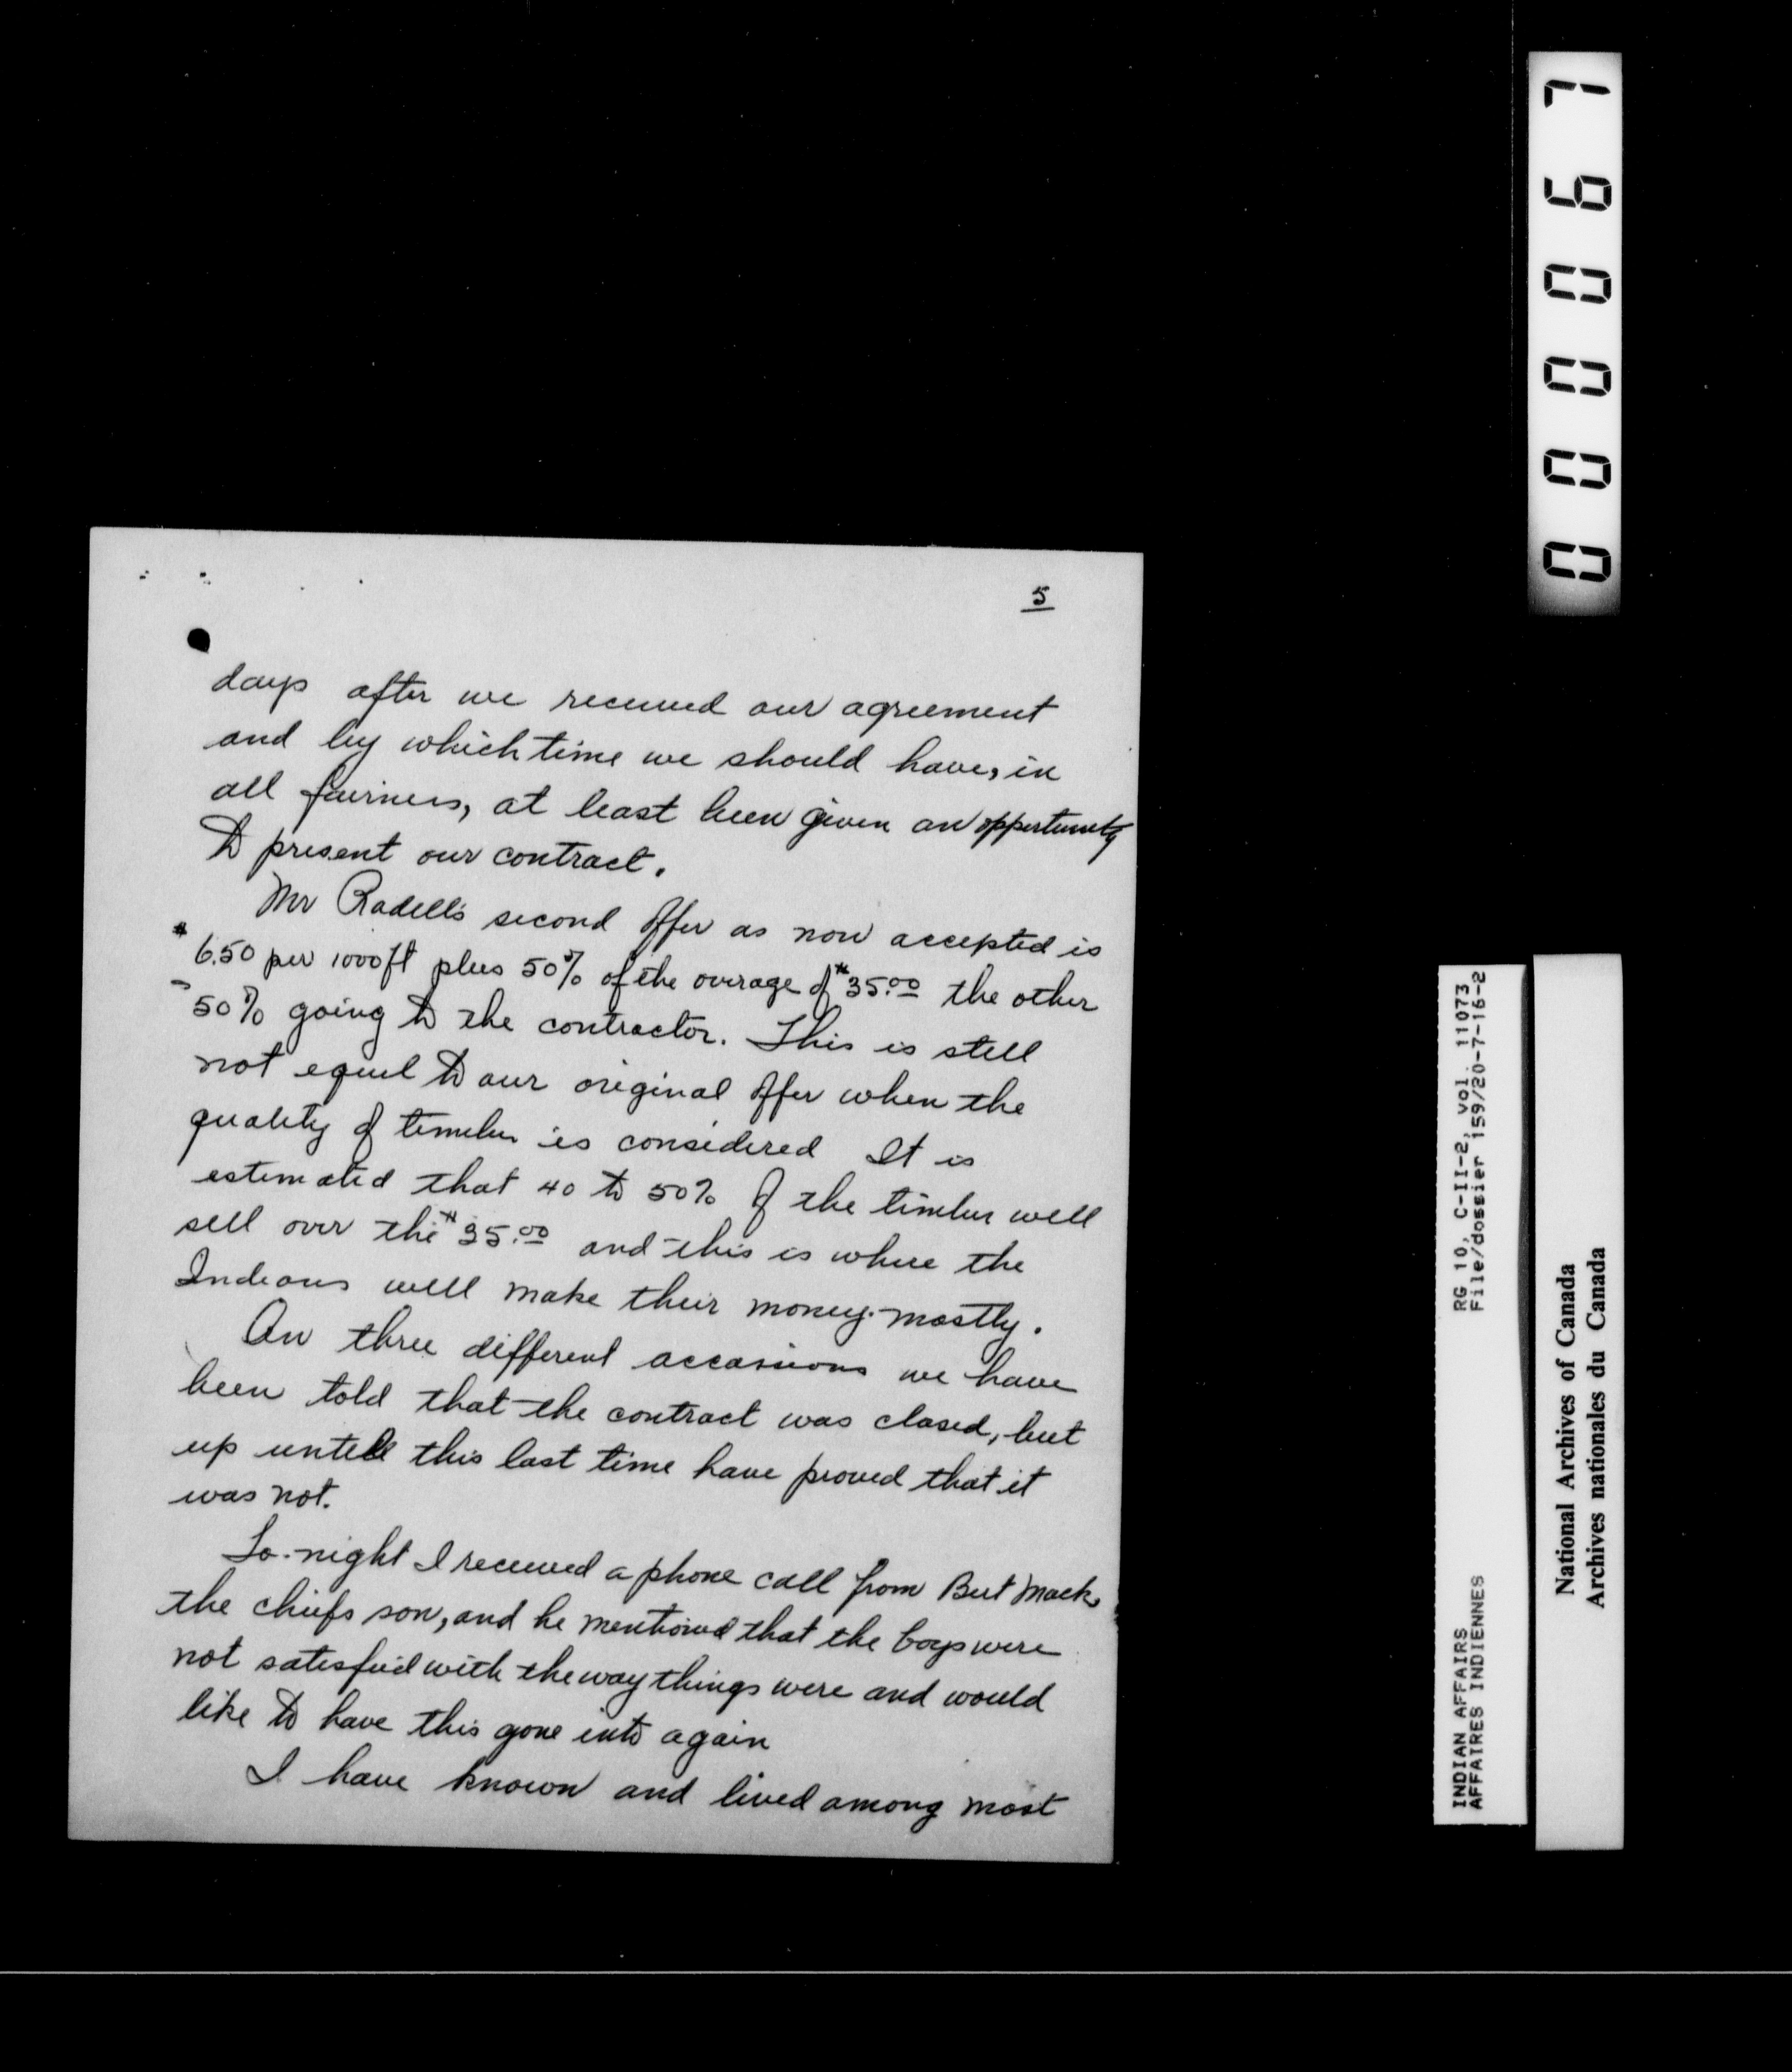 5
days after we received our agreement
and by which time we should have, in
all fairness, at least been given an opportunity
to present our contract.
Mr Radell's second offer as now accepted is
$6.50 per 1000 ft plus 50% of the overage of $35.00 the other
50% going to the contractor. This is still
not equal to our original offer when the
quality of timber is considered It is
estimated that 40 to 50% of the timber will
sell over the $35.00 and this is where the
Indians will make their money mostly.
On three different occassions we have
been told that the contract was closed, but
up untill this last time have proved that it
was not.
To-night I received a phone call from Bert Mack,
the chiefs son, and he mentioned that the boys were
not satisfied with the way things were and would
like to have this gone into again
I have known and lived among most
000067
RG 10, C-II-2, vol. 11073
File/dossier 159/20-7-16-2
INDIAN AFFAIRS
AFFAIRES INDIENNES
National Archives of Canada
Archives nationales du Canada